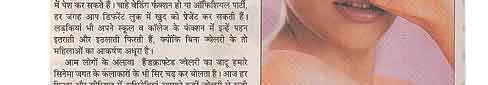 में पेश कर सकते हैं। चाहे वेडिंग फंक्शन हो या ऑफिशियल पार्टी,
हर जगह आप डिफरेंट लुक में खुद को प्रेजेंट कर सकती हैं।
लड़कियां भी अपने स्कूल व कॉलेज के फंक्शन में इन्हें पहन
इतराती और इठलाती फिरती हैं, क्योंकि बिना ज्वेलरी के तो
महिलाओं का आकर्षण अधूरा है।
आम लोगों के अलावा हैंडक्राफ्टेड ज्वेलरी का जादू हमारे
सिनेमा जगत के कलाकारों के भी सिर चढ़ कर बोलता है। आज हर